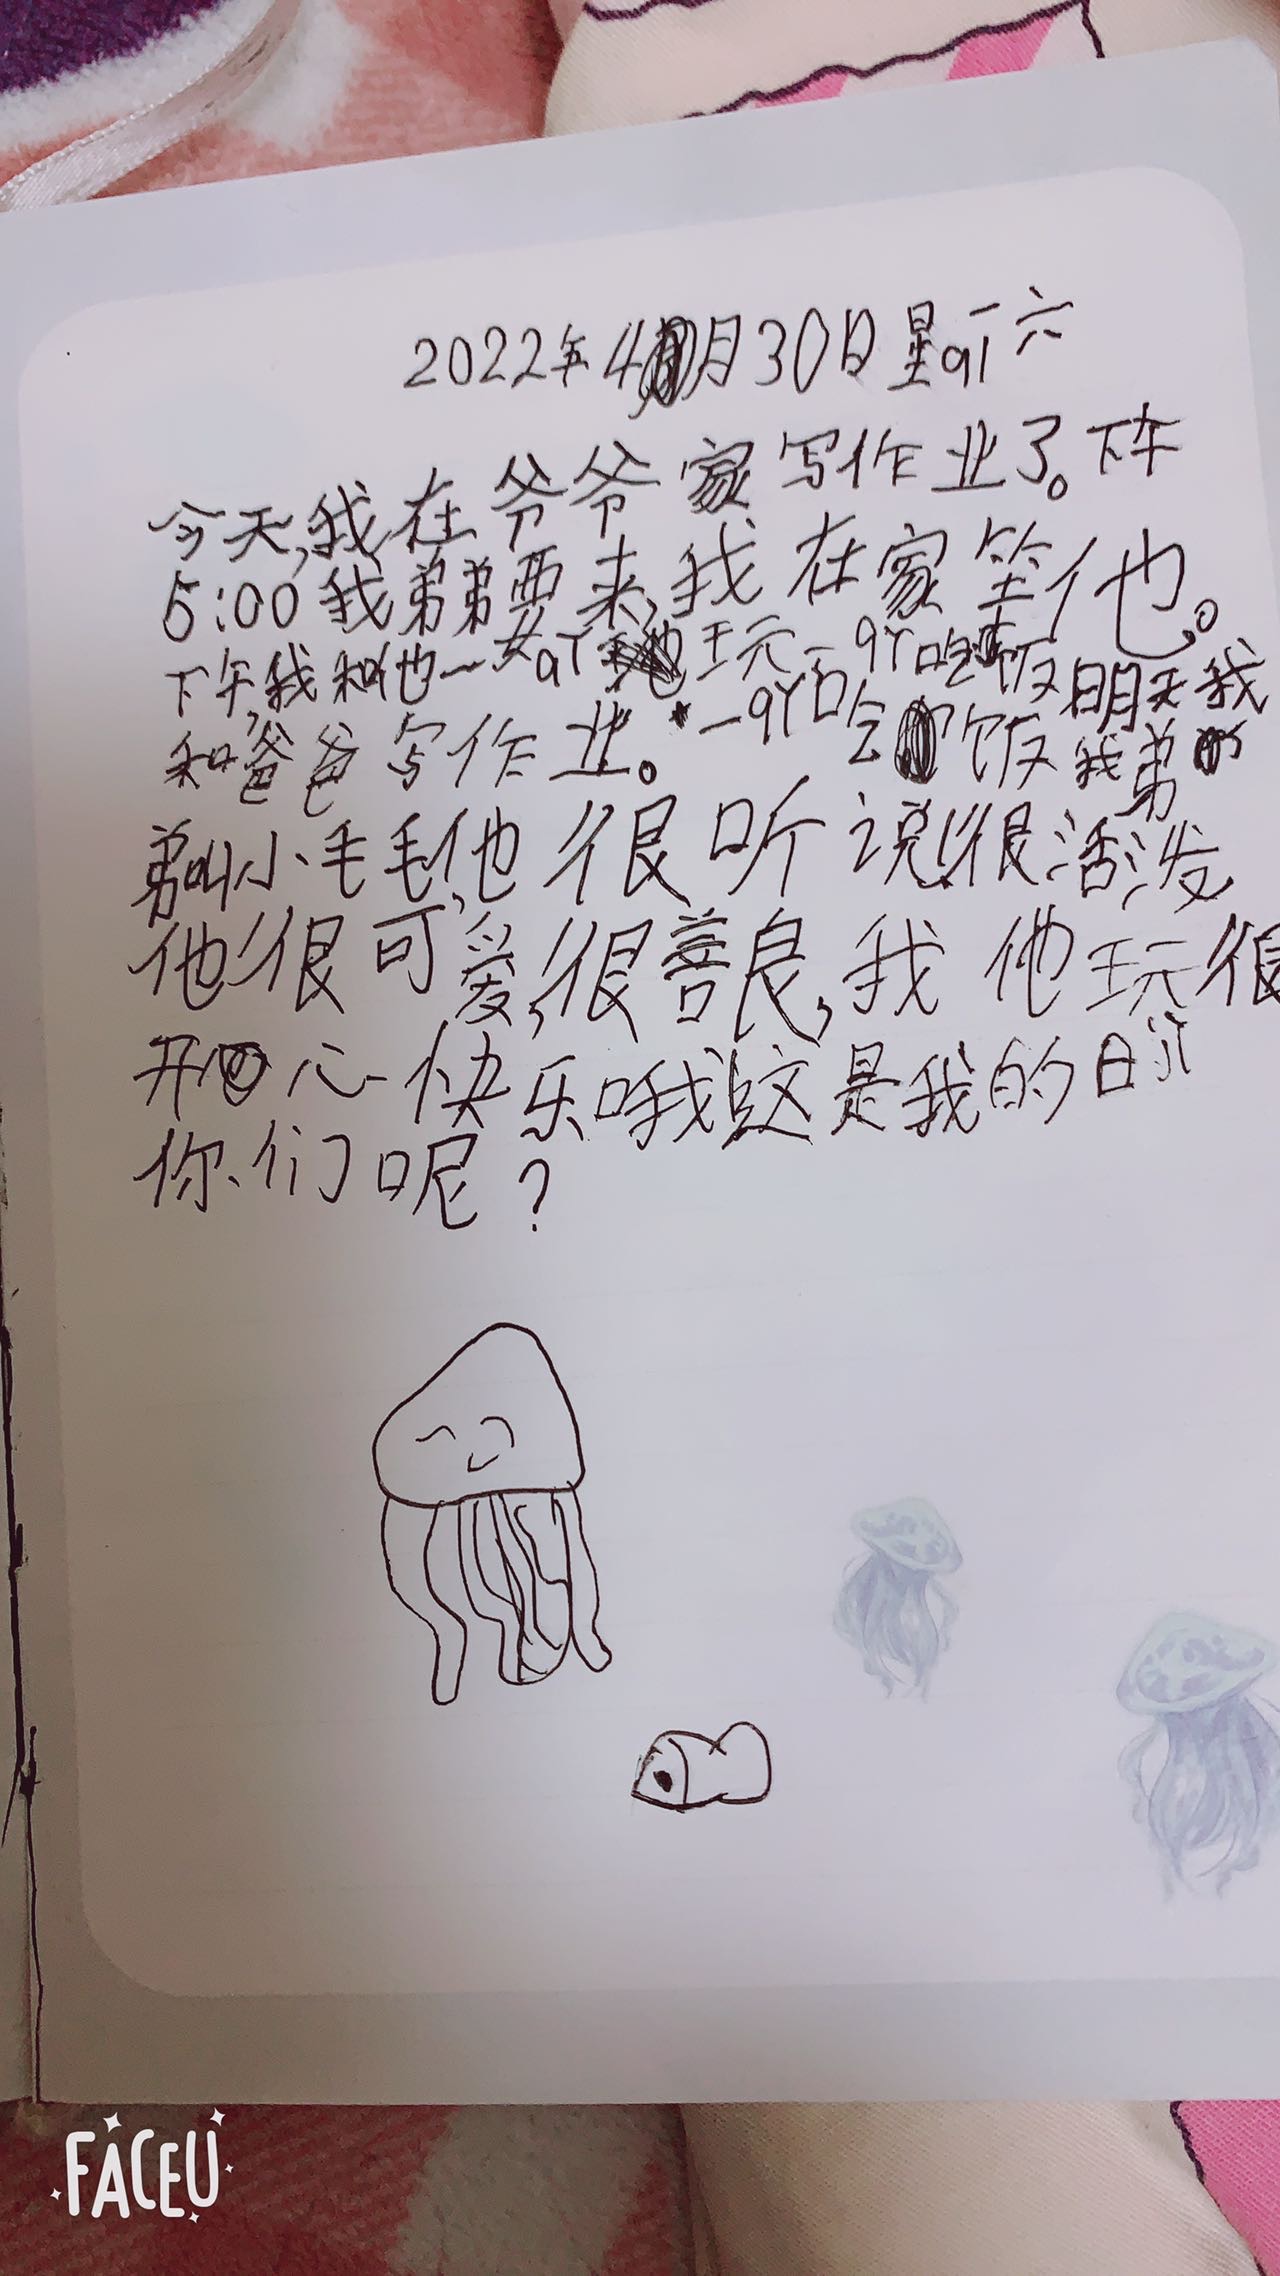 2022年4月30日星qī六
今天,我在爷爷家写作业了。下午
5:00我弟弟要来,我在家等他。
下午,我和他一女qǐ玩一qǐ吃饭明天我
和爸爸写作业。一qǐ吃饭我弟
弟叫小毛毛,他很听说,很活泼
他很可爱,很善良,我他玩很
开心快乐哦我这是我的日jì
你们呢?
FACEU